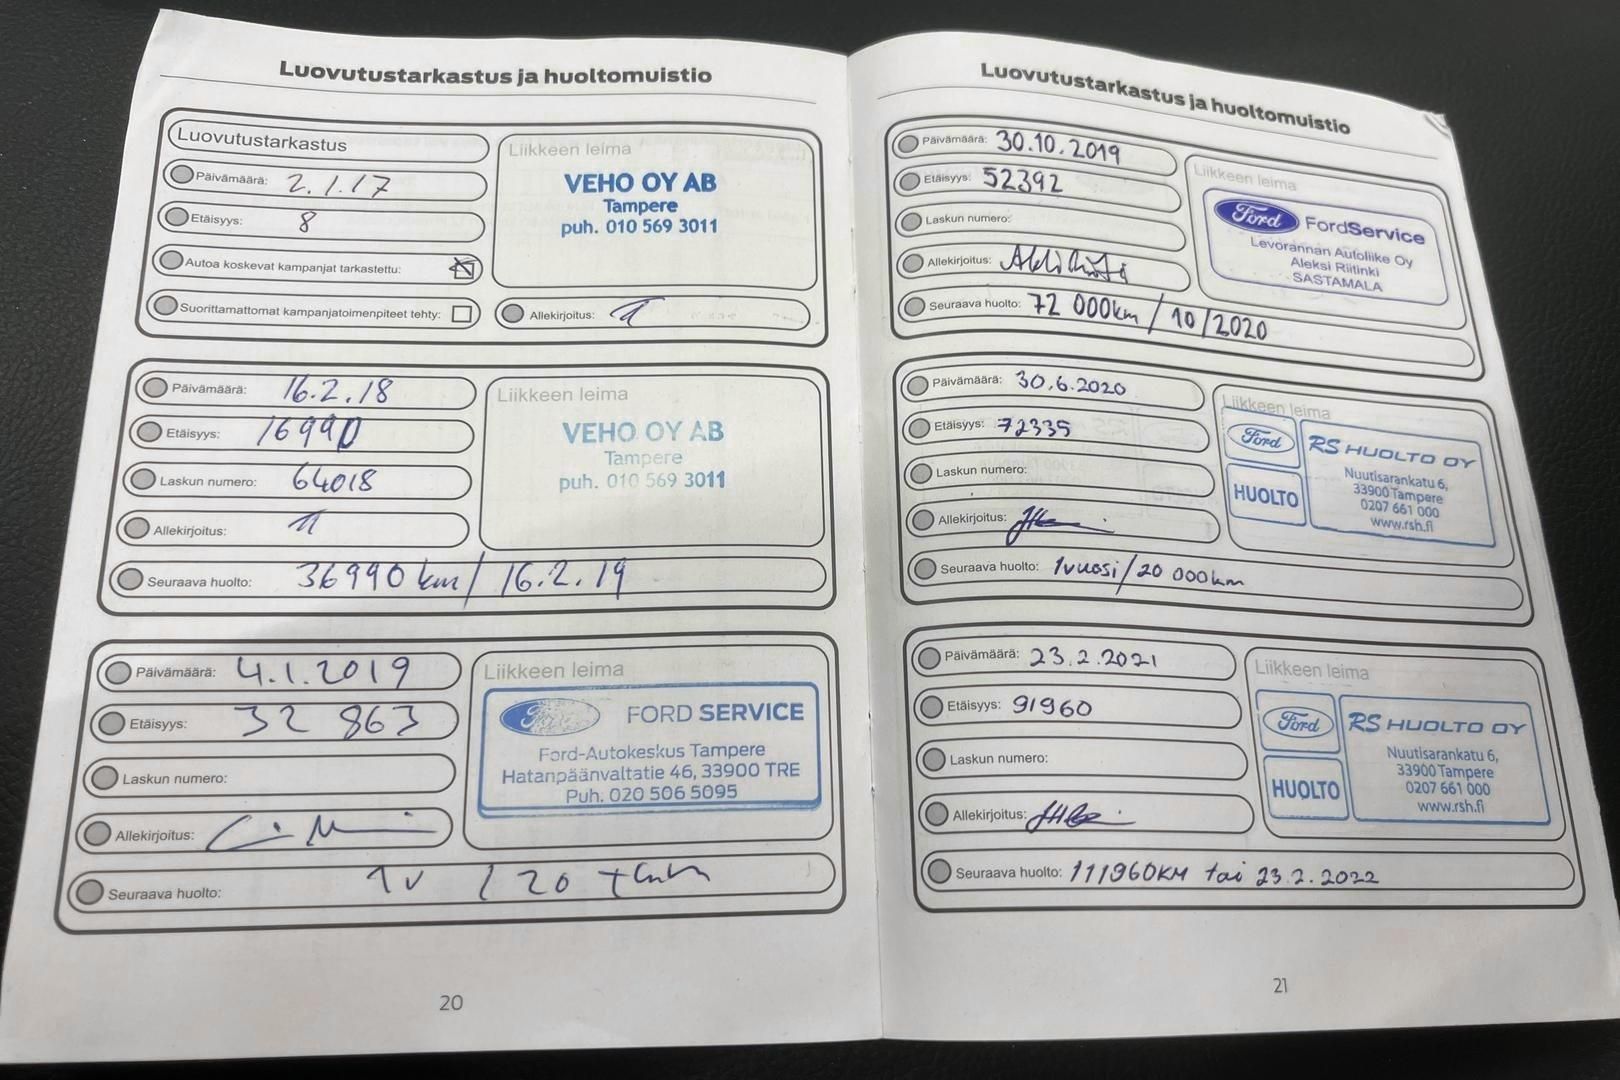 Luovutustarkastus ja huoltomuistio
Luovutustarkastus
Päivämäärä: 2.1.17
Etäisyys: 8
Autoa koskevat kampanjat tarkastettu:
Suorittamattomat kampanjatoimenpiteet tehty:
Liikkeen leima
VEHO OY AB
Tampere
puh. 010 569 3011
Allekirjoitus:
Päivämäärä: 16.2.18
Etäisyys: 16990
Laskun numero: 64018
Allekirjoitus:
Liikkeen leima
VEHO OY AB
Tampere
puh. 010 569 3011
Seuraava huolto: 36990 km / 16.2.19
Päivämäärä: 4.1.2019
Etäisyys: 32 863
Laskun numero:
Allekirjoitus:
Liikkeen leima
Ford FORD SERVICE
Ford-Autokeskus Tampere
Hatanpäänvaltatie 46, 33900 TRE
Puh. 020 506 5095
Seuraava huolto: 1v / 20
20
Luovutustarkastus ja huoltomuistio
Päivämäärä: 30.10.2019
Etäisyys: 52392
Laskun numero:
Allekirjoitus:
Liikkeen leima
Ford FordService
Levorannan Autoliike Oy
Aleksi Riitinki
SASTAMALA
Seuraava huolto: 72 000km / 10/2020
Päivämäärä: 30.6.2020
Etäisyys: 72335
Laskun numero:
Allekirjoitus:
Liikkeen leima
Ford
HUOLTO
RS HUOLTO OY
Nuutisarankatu 6,
33900 Tampere
0207 661 000
www.rsh.fi
Seuraava huolto: 1vuosi/20 000km
Päivämäärä: 23.2.2021
Etäisyys: 91960
Laskun numero:
Allekirjoitus:
Liikkeen leima
Ford
HUOLTO
RS HUOLTO OY
Nuutisarankatu 6,
33900 Tampere
0207 661 000
www.rsh.fi
Seuraava huolto: 111960KM tai 23.2.2022
21